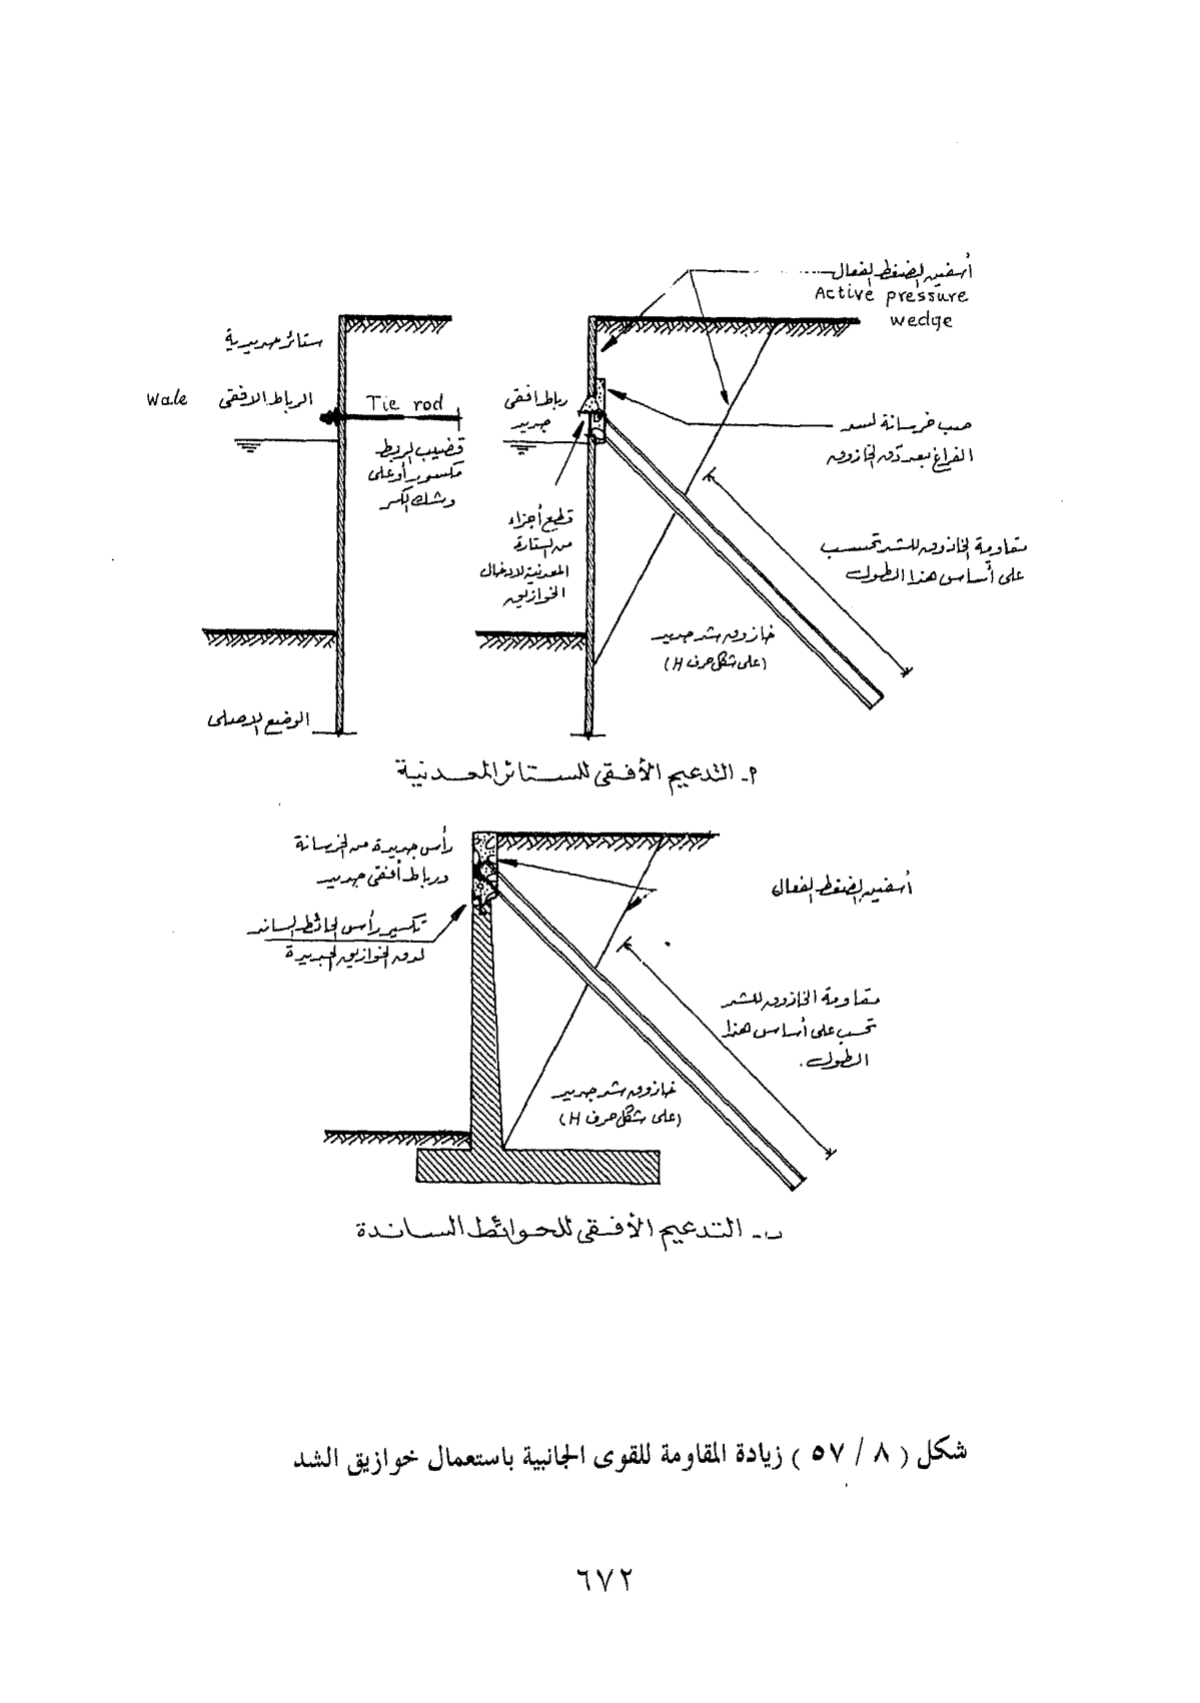 أسفين الضغط الفعال
Active pressure
wedge
ستائر حديدية
الرباط الافقى
Wale
Tie rod
قضيب الربط
مكسور أو على
وشك الكسر
رباط افقى
جديد
صب خرسانة لسد
الفراغ بعد دق الخازوق
قطع أجزاء
من الستارة
المعدنية لادخال
الخوازيق
مقاومة الخازوق للشد تحسب
على أساس هذا الطول
خازوق شد جديد
(على شكل حرف H)
الوضع الاصلى
أ - التدعيم الأفقى للستائر المعدنية
رأس جديدة من الخرسانة
ورباط أفقى جديد
أسفين الضغط الفعال
تكسير رأس الحائط الساند
لدق الخوازيق الجديدة
مقاومة الخازوق للشد
تحسب على أساس هذا
الطول .
خازوق شد جديد
(على شكل حرف H)
ب - التدعيم الأفقى للحوائط الساندة
شكل ( ٨ / ٥٧ ) زيادة المقاومة للقوى الجانبية باستعمال خوازيق الشد
٦٧٢